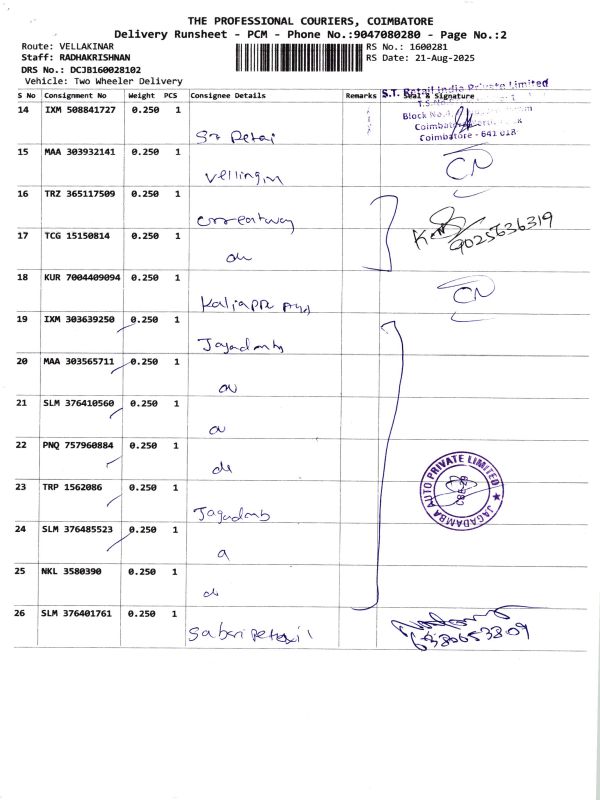 THE PROFESSIONAL COURIERS, COIMBATORE
Delivery Runsheet - PCM - Phone No.:9047080280 - Page No.:2
Route: VELLAKINAR
RS No.: 1600281
Staff: RADHAKRISHNAN
RS Date: 21-Aug-2025
DRS No.: DCJB160028102
Vehicle: Two Wheeler Delivery
S.T. Retail India Private Limited
S No Consignment No Weight PCS Consignee Details Remarks Seal & Signature
14 IXM 508841727 0.250 1
Block No.
Coimbatore - 641 018
15 MAA 303932141 0.250 1
CN
16 TRZ 365117509 0.250 1
9025636319
17 TCG 15150814 0.250 1
do
18 KUR 7004409094 0.250 1
CN
19 IXM 303639250 0.250 1
Jagadamb
20 MAA 303565711 0.250 1
21 SLM 376410560 0.250 1
22 PNQ 757960884 0.250 1
do
23 TRP 1562086 0.250 1
JAGADAMBA AUTO PRIVATE LIMITED
Jagadamb
24 SLM 376485523 0.250 1
25 NKL 3580390 0.250 1
do
26 SLM 376401761 0.250 1
Sabari